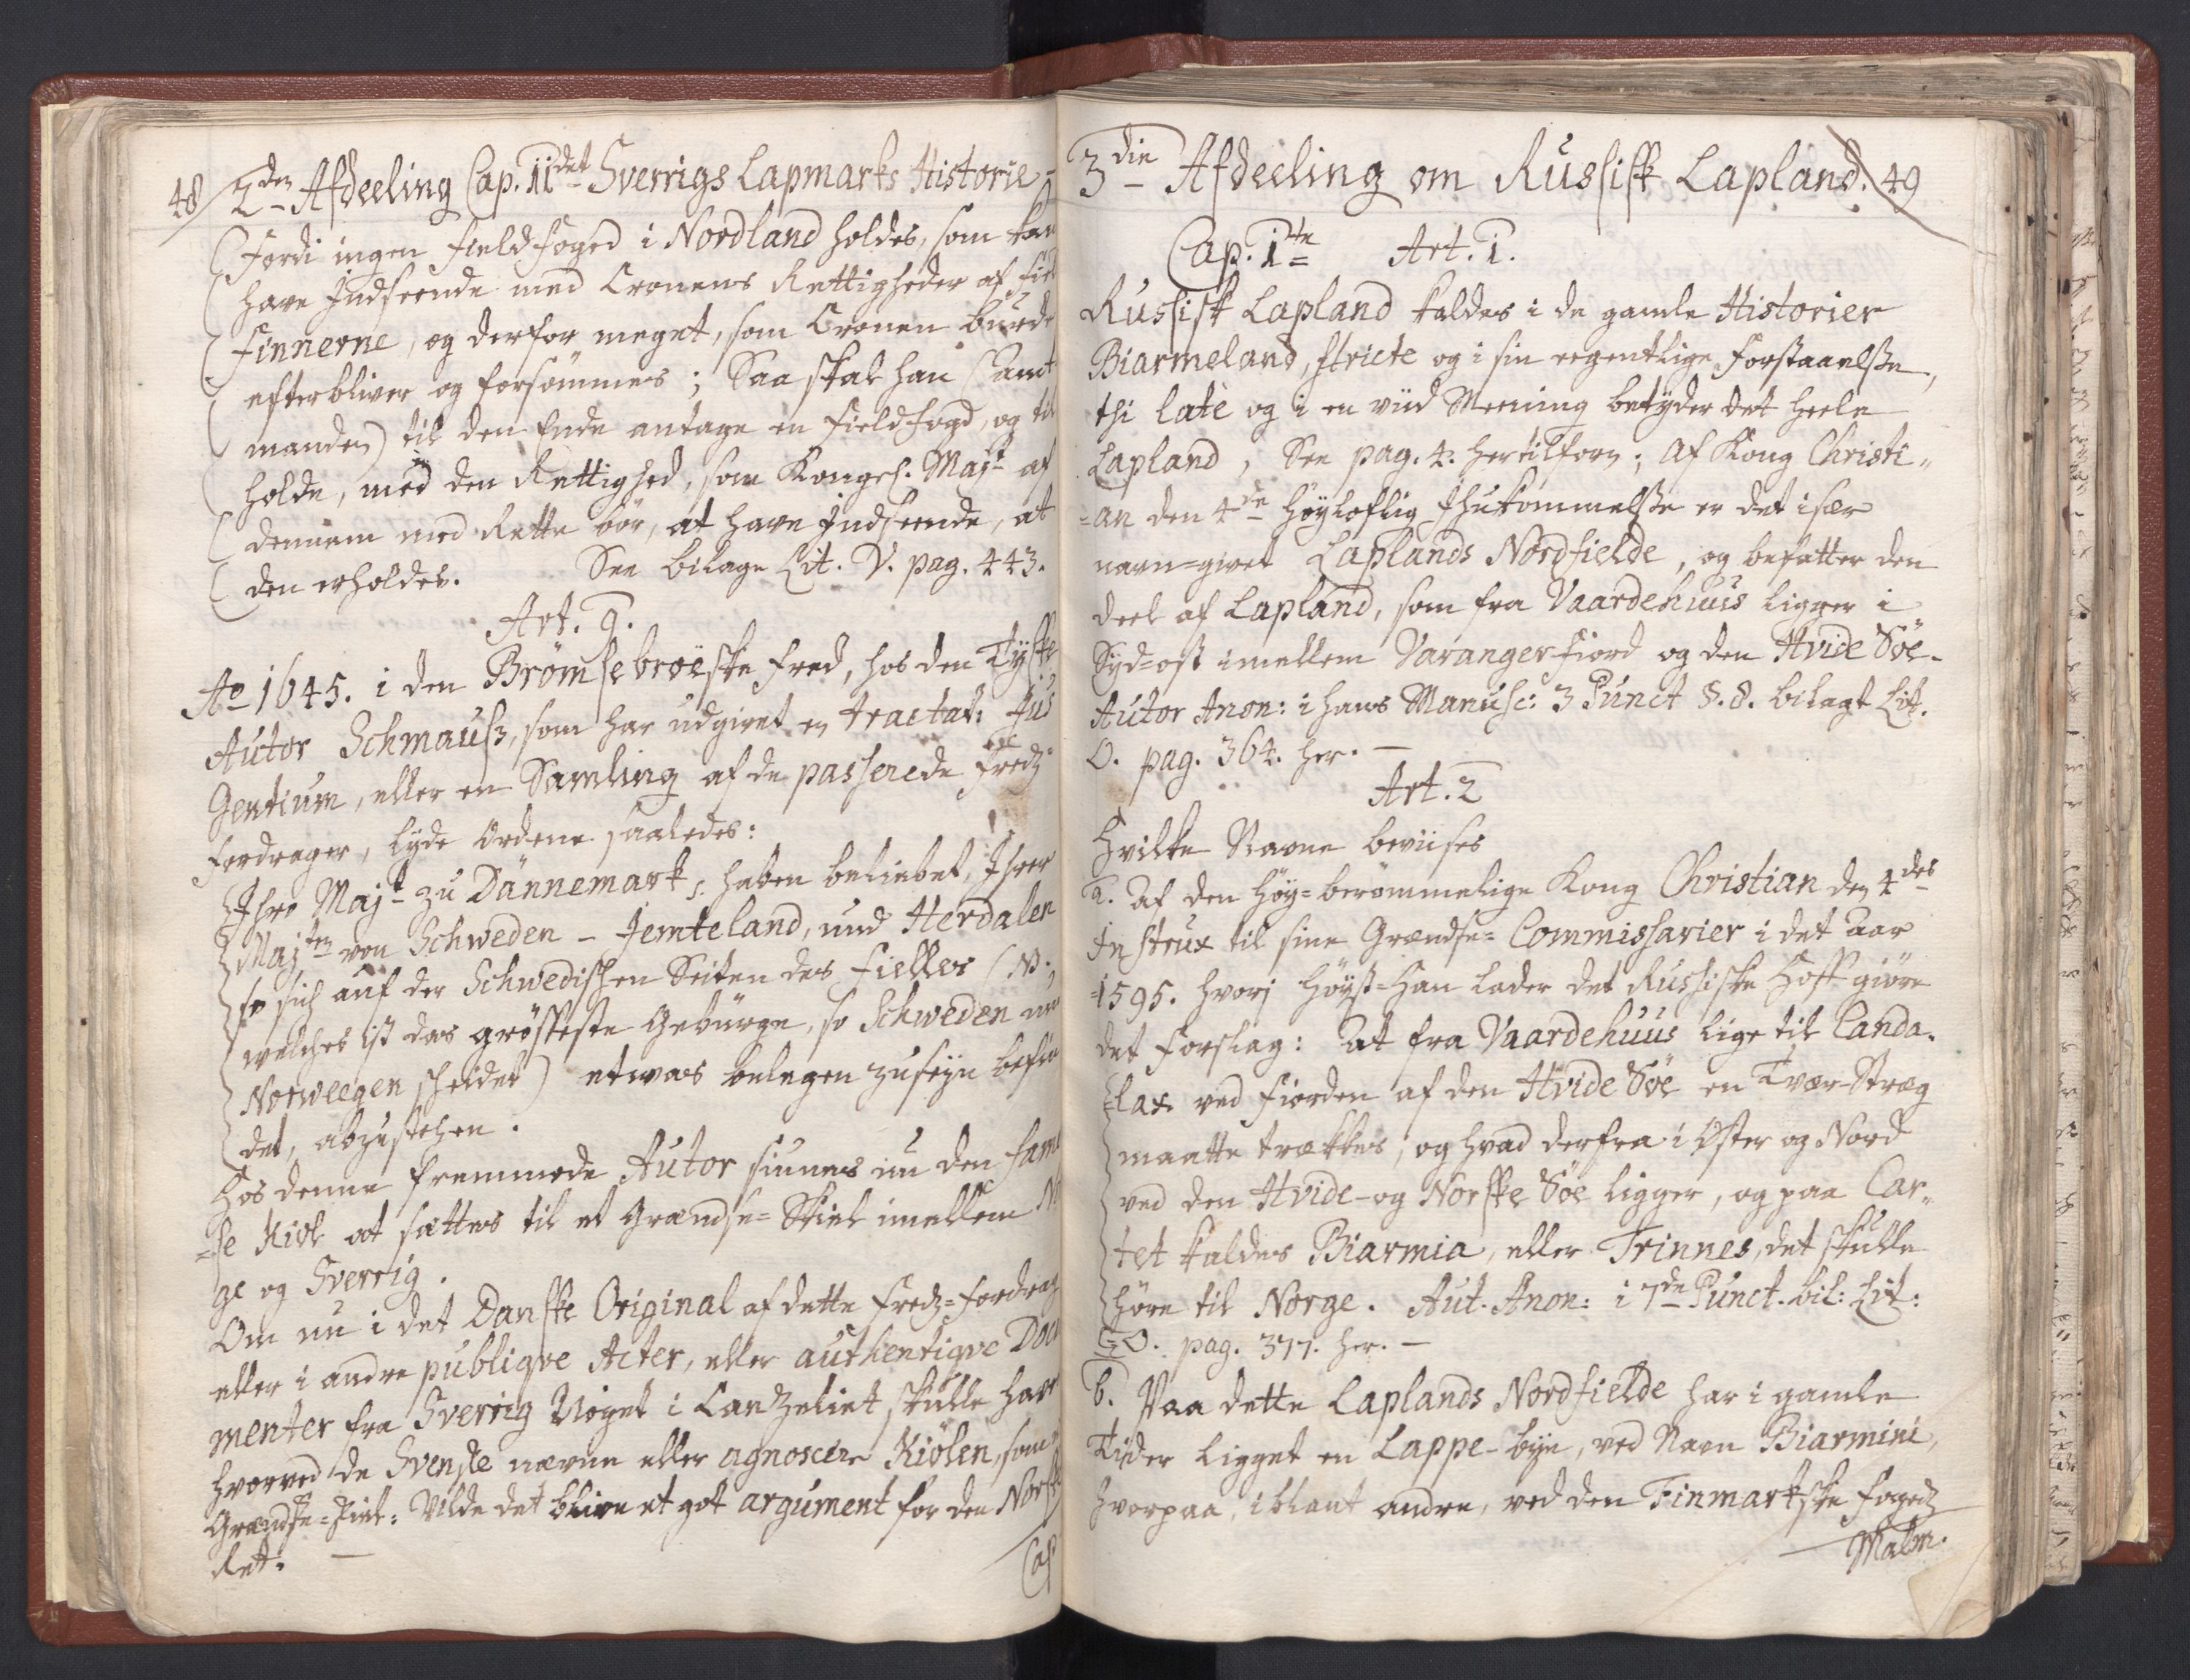 48 2den Afdeeling Cap. 11det Sverrigs Lapmarks Historie
Fordi ingen Field-Foged i Nordland holdes, som kan
have Indseende med Cronens Rettigheder af Field
Finnerne, og derfor meget, som Cronen burde
efterbliver og forsømmes; Saa skal han (Amt
manden) til den Ende antage en Fieldfogd, og til
holde, med den Rettighed, som Kongel. Majt af
dennem med Rette bør, at have Indseende, at
den erholdes. See bilage Lit. V. pag. 443.
Art. 9.
Ao 1645. i den Brømsebroëske Fred, hos den Tyske
Autor Schmauss, som har udgivet en tractat: Jus
Gentium, eller en Samling af de passerede Freds
fordrager, lyde Ordene saaledes:
Ihro Majt zu Dännemark, haben beliebet, Ihrer
Majten von Schweden - Jemteland, und Herdalen
so sich auf der Schwedischen Seiten des Fielles (NB.
welches ist das grösseste Gebürge, so Schweden und
Norweegen scheidet) etwas belegen zuseyn befin
det, abzustehen.
Hos denne fremmede Autor finnes nu den samme
=se Kiøl at sættes til et Grændse-Skiel imellem No
ge og Sverrig.
Om nu i det Danske Original af dette Freds-fordrag
eller i andre publiqve Acter, eller authentiqve Docu
menter fra Sverrig Noget i Canzeliet skulle haves
hvorved de Svenske nævne eller agnoscere Kiølen, som
Grændse-Skiel: Vilde det blive et got argument for den Norske
Ret. —
Cap.
3die Afdeeling om Russisk Lapland. 49
Cap. 1te Art. 1.
Russisk Lapland kaldes i de gamle Historier
Biarmeland, stricte og i sin egentlige Forstaaelsse,
thi latè og i en viid Meening betyder det heele
Lapland, See pag. 4. hertilforn; Af Kong Christi=
=an den 4de Høyloflig Ihukommelsse er det især
navn=givet Laplands Nordfielde, og befatter den
deel af Lapland, som fra Vaardehuus ligger i
Syd=ost imellem Varangerfiord og den Hvide Søe.
Autor Anon: i hans Manusc: 3 Punct §. 8. bilagt Lit.
O. pag. 364. her. —
Art. 2
Hvilke Navne beviises
a. Af den Høy=berømmelige Kong Christian den 4des
Instrux til sine Grændse= Commissarier i det Aar
=1595. hvorj Høyst=Han lader det Russiske Hoff giøre
det Forslag: At fra Vaardehuus lige til Canda.
=lax ved Fiorden af den Hvide Søe en Tvær-Stræg
maatte trækkes, og hvad derfra i Øster og Nord
ved den Hvide- og Norske Søe ligger, og paa Car=
tet kaldes Biarmia, eller Trinnes, det skulle
høre til Norge. Aut. Anon: i 7de Punct. bil: Lit:
O. pag. 377. her. —
b. Paa dette Laplands Nordfielde har i gamle
Tiider ligget en Lappe-bye, ved Navn Biarmini,
hvorpaa, iblant andre, ved den Finmarkske Foged
Malm.